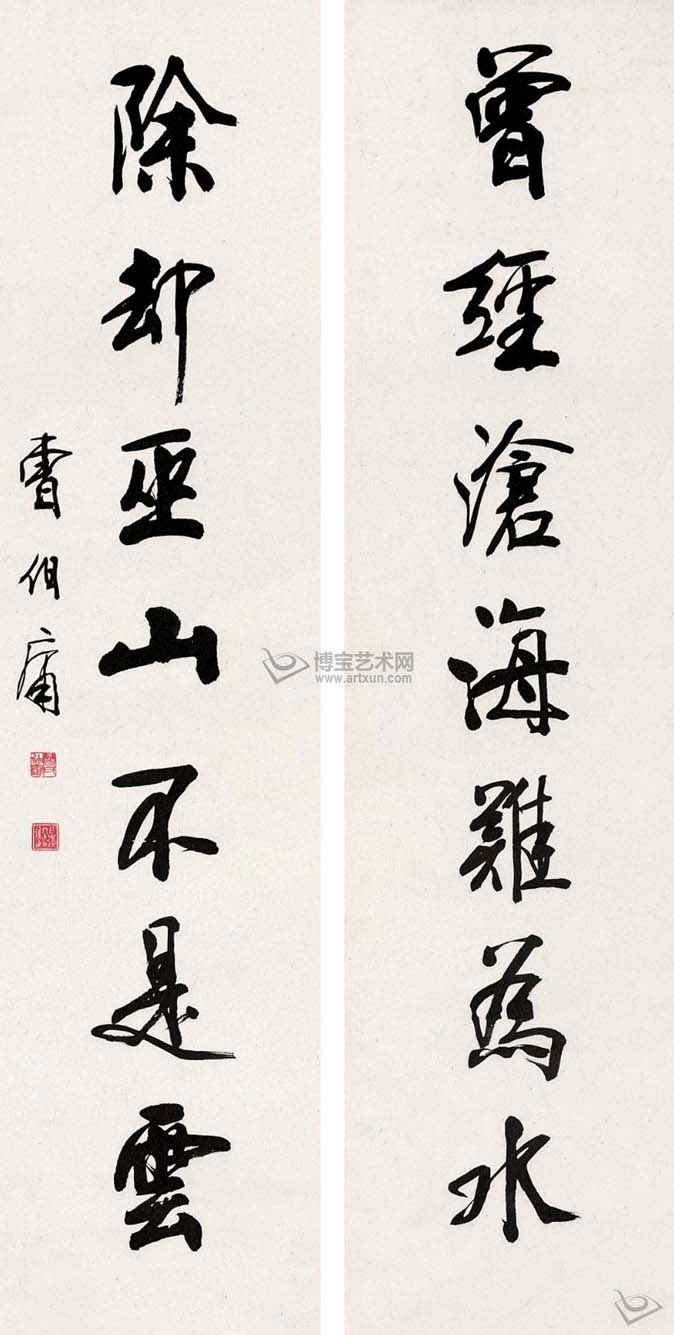 曾經滄海難為水
除却巫山不是雲
曹伯庸
博宝艺术网
www.artxun.com